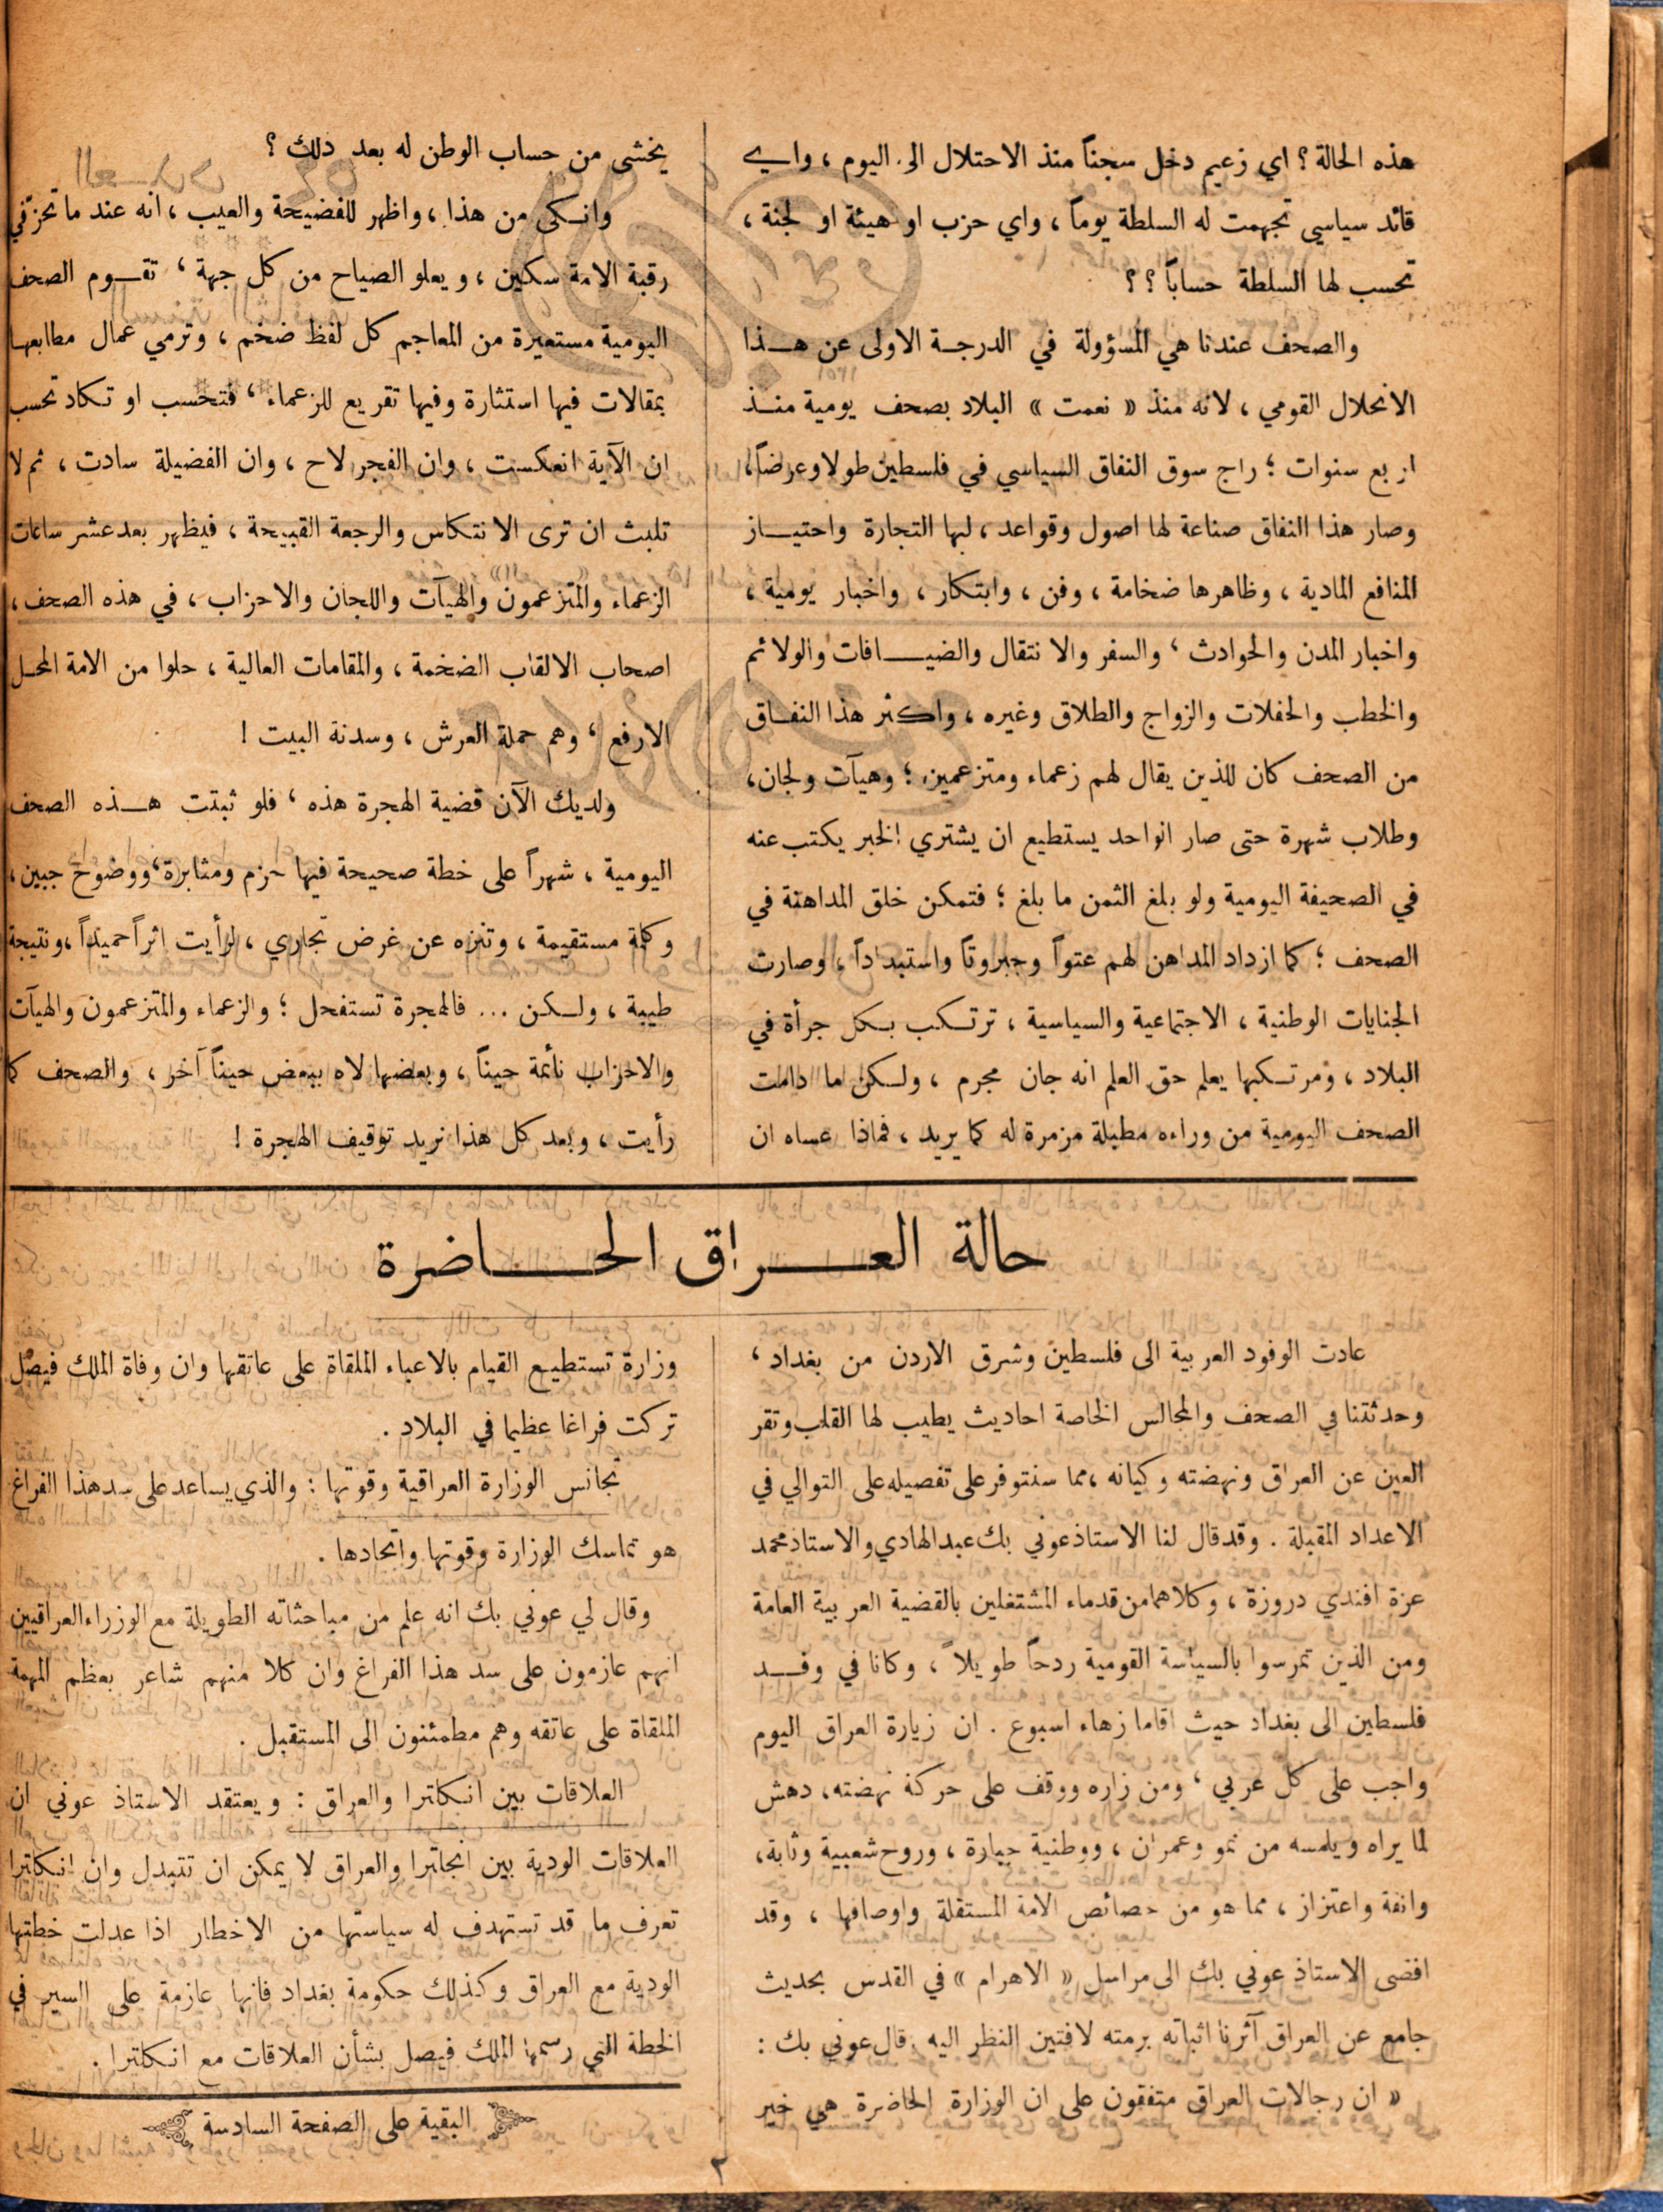 هذه الحالة ؟ اي زعيم دخل سجناً منذ الاحتلال الى اليوم ، واي
قائد سياسي تجهمت له السلطة يوماً ، واي حزب او هيئة او لجنة ،
تحسب لها السلطة حساباً ؟ ؟
والصحف عندنا هي المسؤولة في الدرجة الاولى عن هذا
الانحلال القومي ، لانه منذ « نعمت » البلاد بصحف يومية منذ
اربع سنوات ؛ راج سوق النفاق السياسي في فلسطين طولا وعرضاً،
وصار هذا النفاق صناعة لها اصول وقواعد ، لبها التجارة واحتياز
المنافع المادية ، وظاهرها ضخامة ، وفن ، وابتكار ، واخبار يومية ،
واخبار المدن والحوادث ، والسفر والانتقال والضيافات والولائم
والخطب والحفلات والزواج والطلاق وغيره ، واكثر هذا النفاق
من الصحف كان للذين يقال لهم زعماء ومتزعمين ؛ وهيآت ولجان،
وطلاب شهرة حتى صار الواحد يستطيع ان يشتري الخبر يكتب عنه
في الصحيفة اليومية ولو بلغ الثمن ما بلغ ؛ فتمكن خلق المداهنة في
الصحف ؛ كما ازداد المداهن لهم عتواً وجبروتاً واستبداداً ، وصارت
الجنايات الوطنية ، الاجتماعية والسياسية ، ترتكب بكل جرأة في
البلاد ، ومرتكبها يعلم حق العلم انه جان مجرم ، ولكن ما دامت
الصحف اليومية من وراءه مطبلة مزمرة له كما يريد ، فماذا عساه ان
يخشى من حساب الوطن له بعد ذلك ؟
وانكى من هذا ، واظهر للفضيحة والعيب ، انه عند ما تحز في
رقبة الامة سكين ، ويعلو الصياح من كل جهة ، تقوم الصحف
اليومية مستعيرة من المعاجم كل لفظ ضخم ، وترمي عمال مطابعها
بمقالات فيها استثارة وفيها تقريع للزعماء ، فتحسب او تكاد تحسب
ان الآية انعكست ، وان الفجر لاح ، وان الفضيلة سادت ، ثم لا
تلبث ان ترى الانتكاس والرجعة القبيحة ، فيظهر بعد عشر ساعات
الزعماء والمتزعمون والهيآت واللجان والاحزاب ، في هذه الصحف ،
اصحاب الالقاب الضخمة ، والمقامات العالية ، حلوا من الامة المحل
الارفع ، وهم حملة العرش ، وسدنة البيت !
ولديك الآن قضية الهجرة هذه ، فلو ثبتت هذه الصحف
اليومية ، شهراً على خطة صحيحة فيها حزم ومثابرة ، ووضوح جبين ،
وكلمة مستقيمة ، وتنزه عن غرض تجاري ، لرأيت اثراً حميداً ، ونتيجة
طيبة ، ولكن ... فالهجرة تستفحل ؛ والزعماء والمتزعمون والهيآت
والاحزاب نائمة حيناً ، وبعضها لاه ببعض حيناً آخر ، والصحف كما
رأيت ، وبعد كل هذا نريد توقيف الهجرة !
حالة العراق الحاضرة
عادت الوفود العربية الى فلسطين وشرق الاردن من بغداد ،
وحدثتنا في الصحف والمجالس الخاصة احاديث يطيب لها القلب وتقر
العين عن العراق ونهضته وكيانه ، مما سنتوفر على تفصيله على التوالي في
الاعداد المقبلة . وقد قال لنا الاستاذ عوني بك عبد الهادي والاستاذ محمد
عزة افندي دروزة ، وكلاهما من قدماء المشتغلين بالقضية العربية العامة
ومن الذين تمرسوا بالسياسة القومية ردحاً طويلاً ، وكانا في وفد
فلسطين الى بغداد حيث اقاما زهاء اسبوع . ان زيارة العراق اليوم
واجب على كل عربي ، ومن زاره ووقف على حركة نهضته ، دهش
لما يراه ويلمسه من نمو وعمران ، ووطنية جبارة ، وروح شعبية وثابة،
وانفة واعتزاز ، مما هو من خصائص الامة المستقلة واوصافها ، وقد
افضى الاستاذ عوني بك الى مراسل « الاهرام » في القدس بحديث
جامع عن العراق آثرنا اثباته برمته لافتين النظر اليه . قال عوني بك :
« ان رجالات العراق متفقون على ان الوزارة الحاضرة هي خير
وزارة تستطيع القيام بالاعباء الملقاة على عاتقها وان وفاة الملك فيصل
تركت فراغا عظيما في البلاد .
تجانس الوزارة العراقية وقوتها : والذي يساعد على سد هذا الفراغ
هو تماسك الوزارة وقوتها واتحادها .
وقال لي عوني بك انه علم من مباحثاته الطويلة مع الوزراء العراقيين
انهم عازمون على سد هذا الفراغ وان كلا منهم شاعر بعظم المهمة
الملقاة على عاتقه وهم مطمئنون الى المستقبل .
العلاقات بين انكلترا والعراق : ويعتقد الاستاذ عوني ان
العلاقات الودية بين انجلترا والعراق لا يمكن ان تتبدل وان انكلترا
تعرف ما قد تستهدف له سياستها من الاخطار اذا عدلت خطتها
الودية مع العراق وكذلك حكومة بغداد فانها عازمة على السير في
الخطة التي رسمها الملك فيصل بشأن العلاقات مع انكلترا .
البقية على الصفحة السادسة
٣